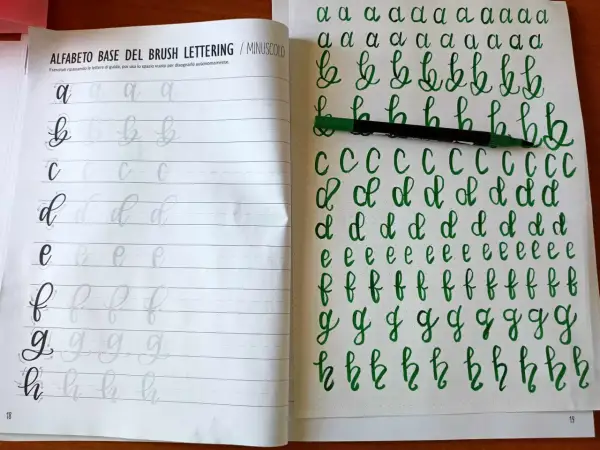 ALFABETO BASE DEL BRUSH LETTERING / MINUSCOLO
a a a a
b b b b
c c c c
d d d d
e e e e
f f f f
g g g g
h h h h
18
a a a a a a a a a a a
a a a a a a a a a a
b b b b b b b b
b b b b b b b b
c c c c c c c c c c c
d d d d d d d d
d d d d d d d d d
e e e e e e e e e e e e e
f f f f f f f f f f f f
g g g g g g g g g
h h h h h h h h h h h
19